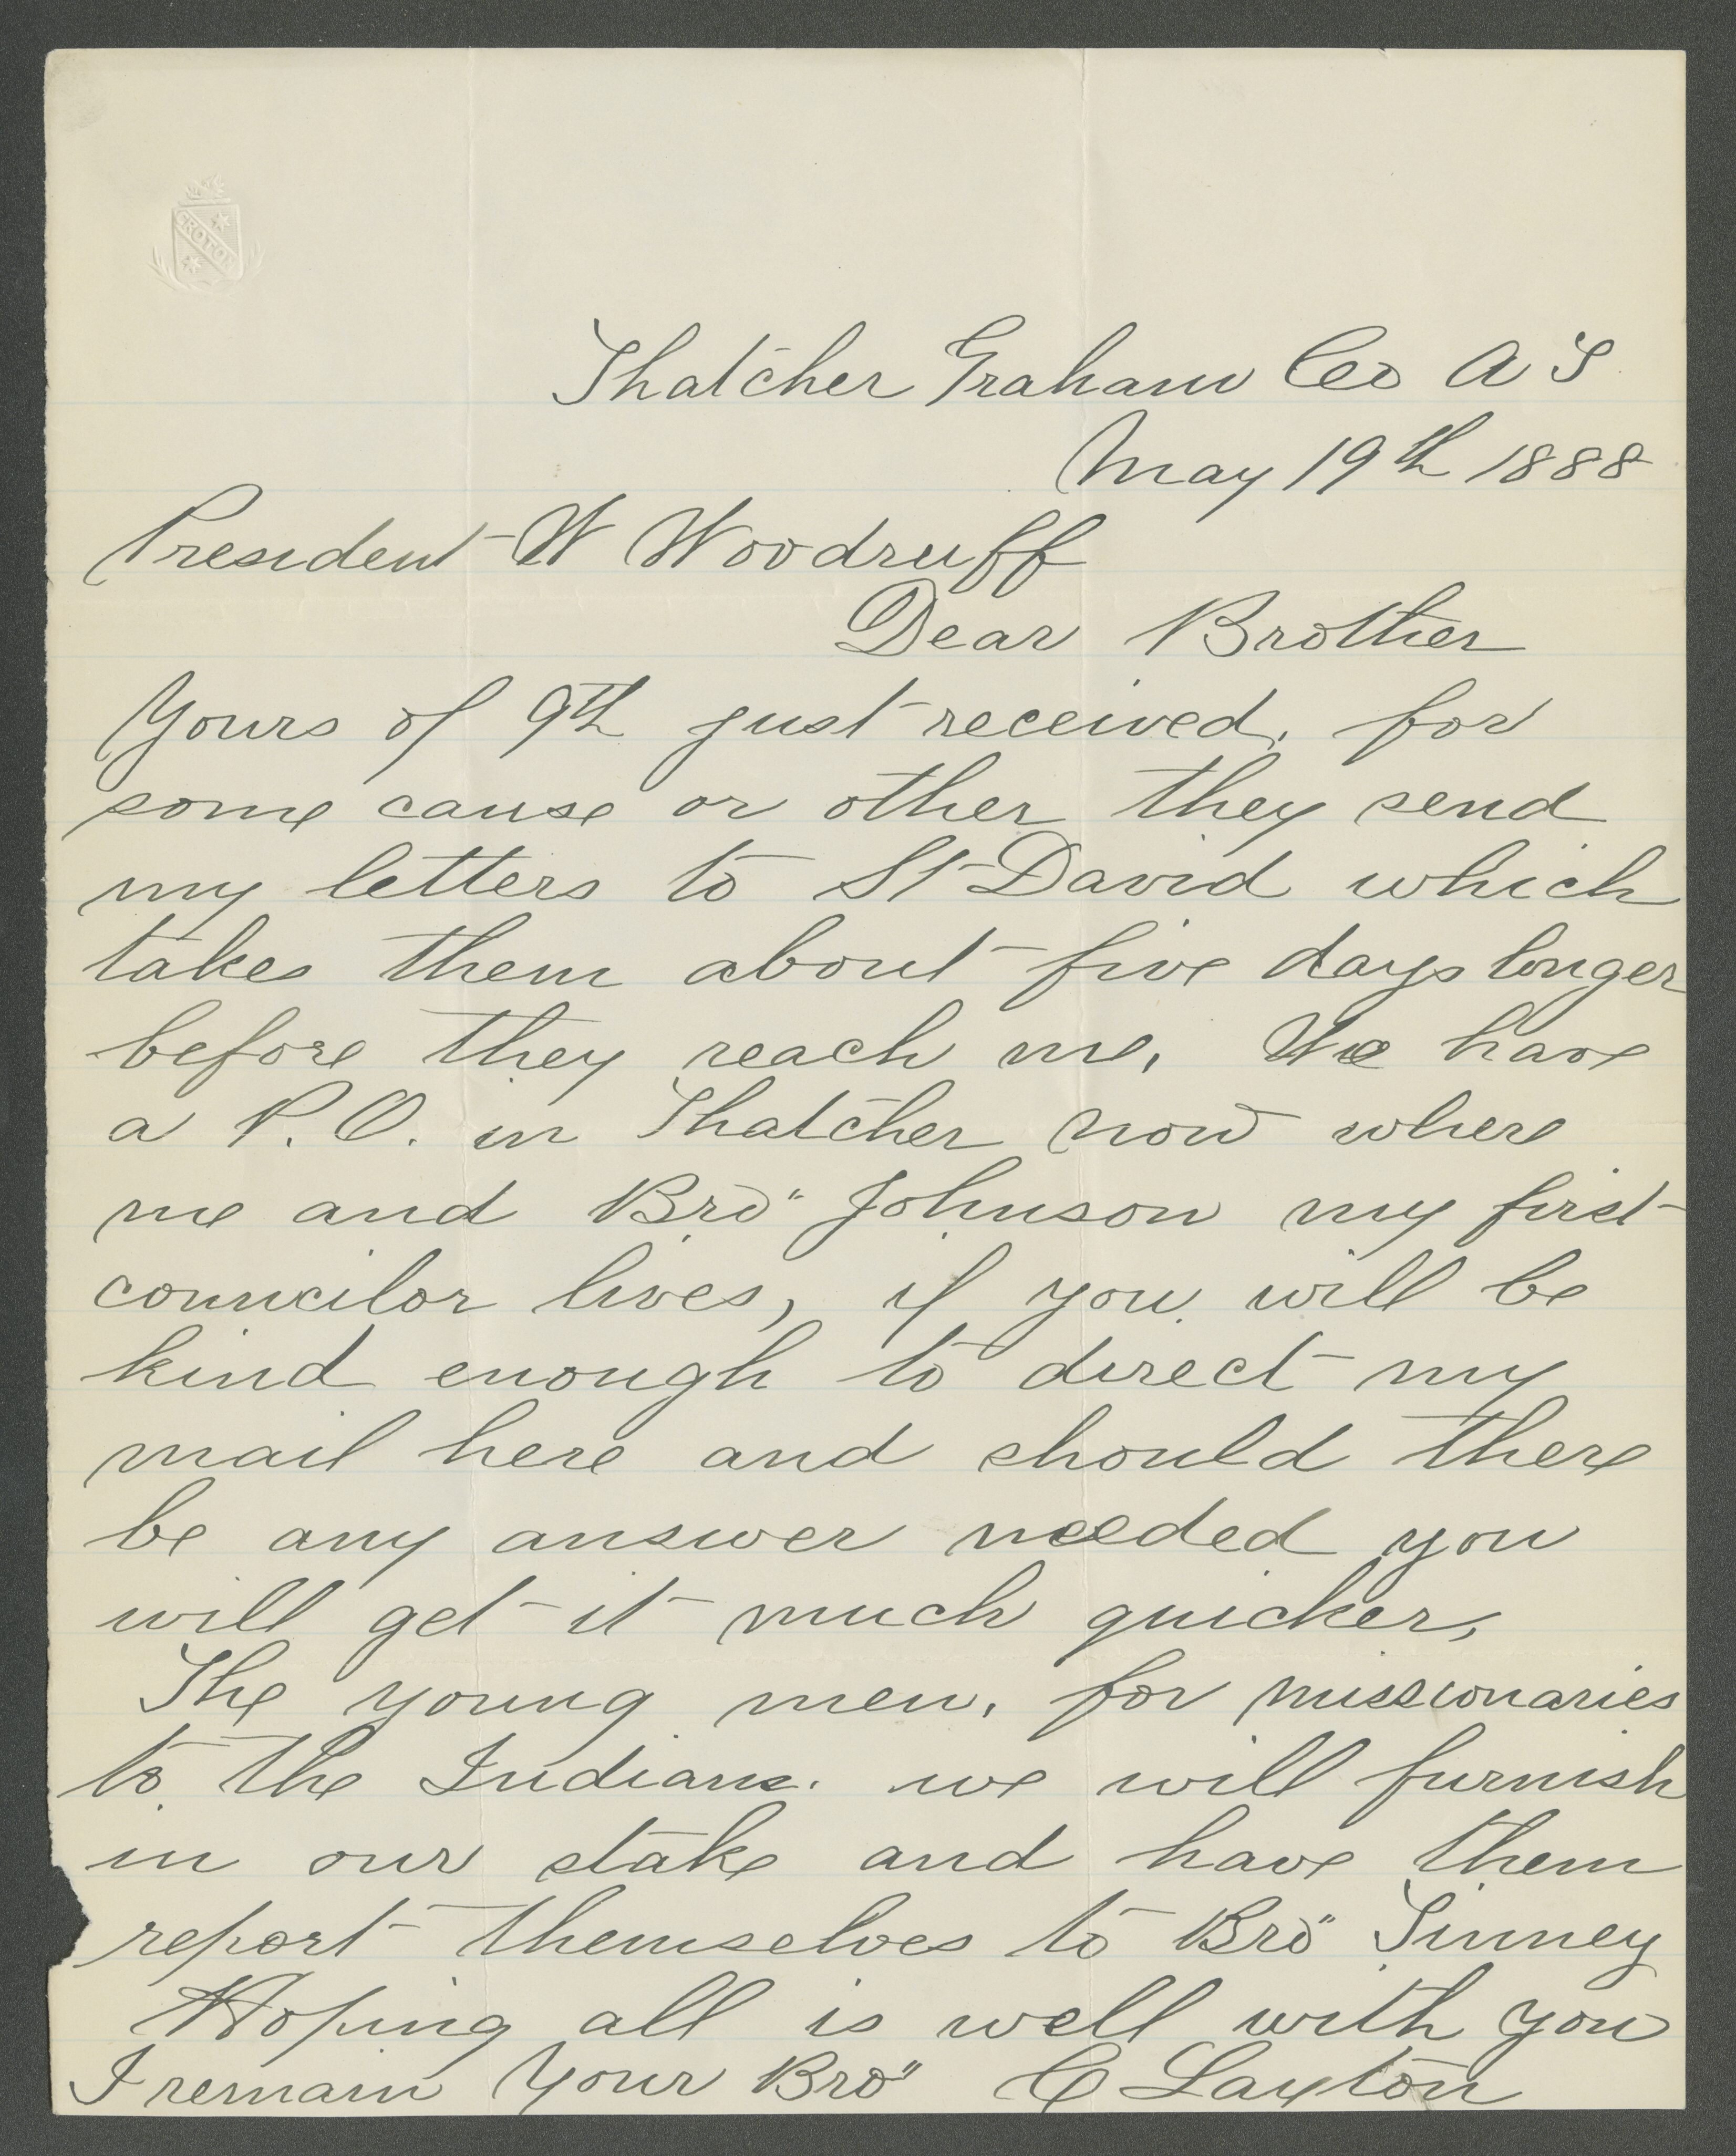 CROTON
Thatcher Graham Co A T
May 19th 1888
President W Woodruff
Dear Brother
Yours of 9th just received, for
some cause or other they send
my letters to St David which
takes them about five days longer
before they reach me, We have
a P.O. in Thatcher now where
me and Bro" Johnson my first
councilor lives, if you will be
kind enough to direct my
mail here and should there
be any answer needed you
will get it much quicker,
The young men, for missionaries
to the Indians. we will furnish
in our stake and have them
report themselves to Bro" Tinney
Hoping all is well with you
I remain Your Bro" C Layton